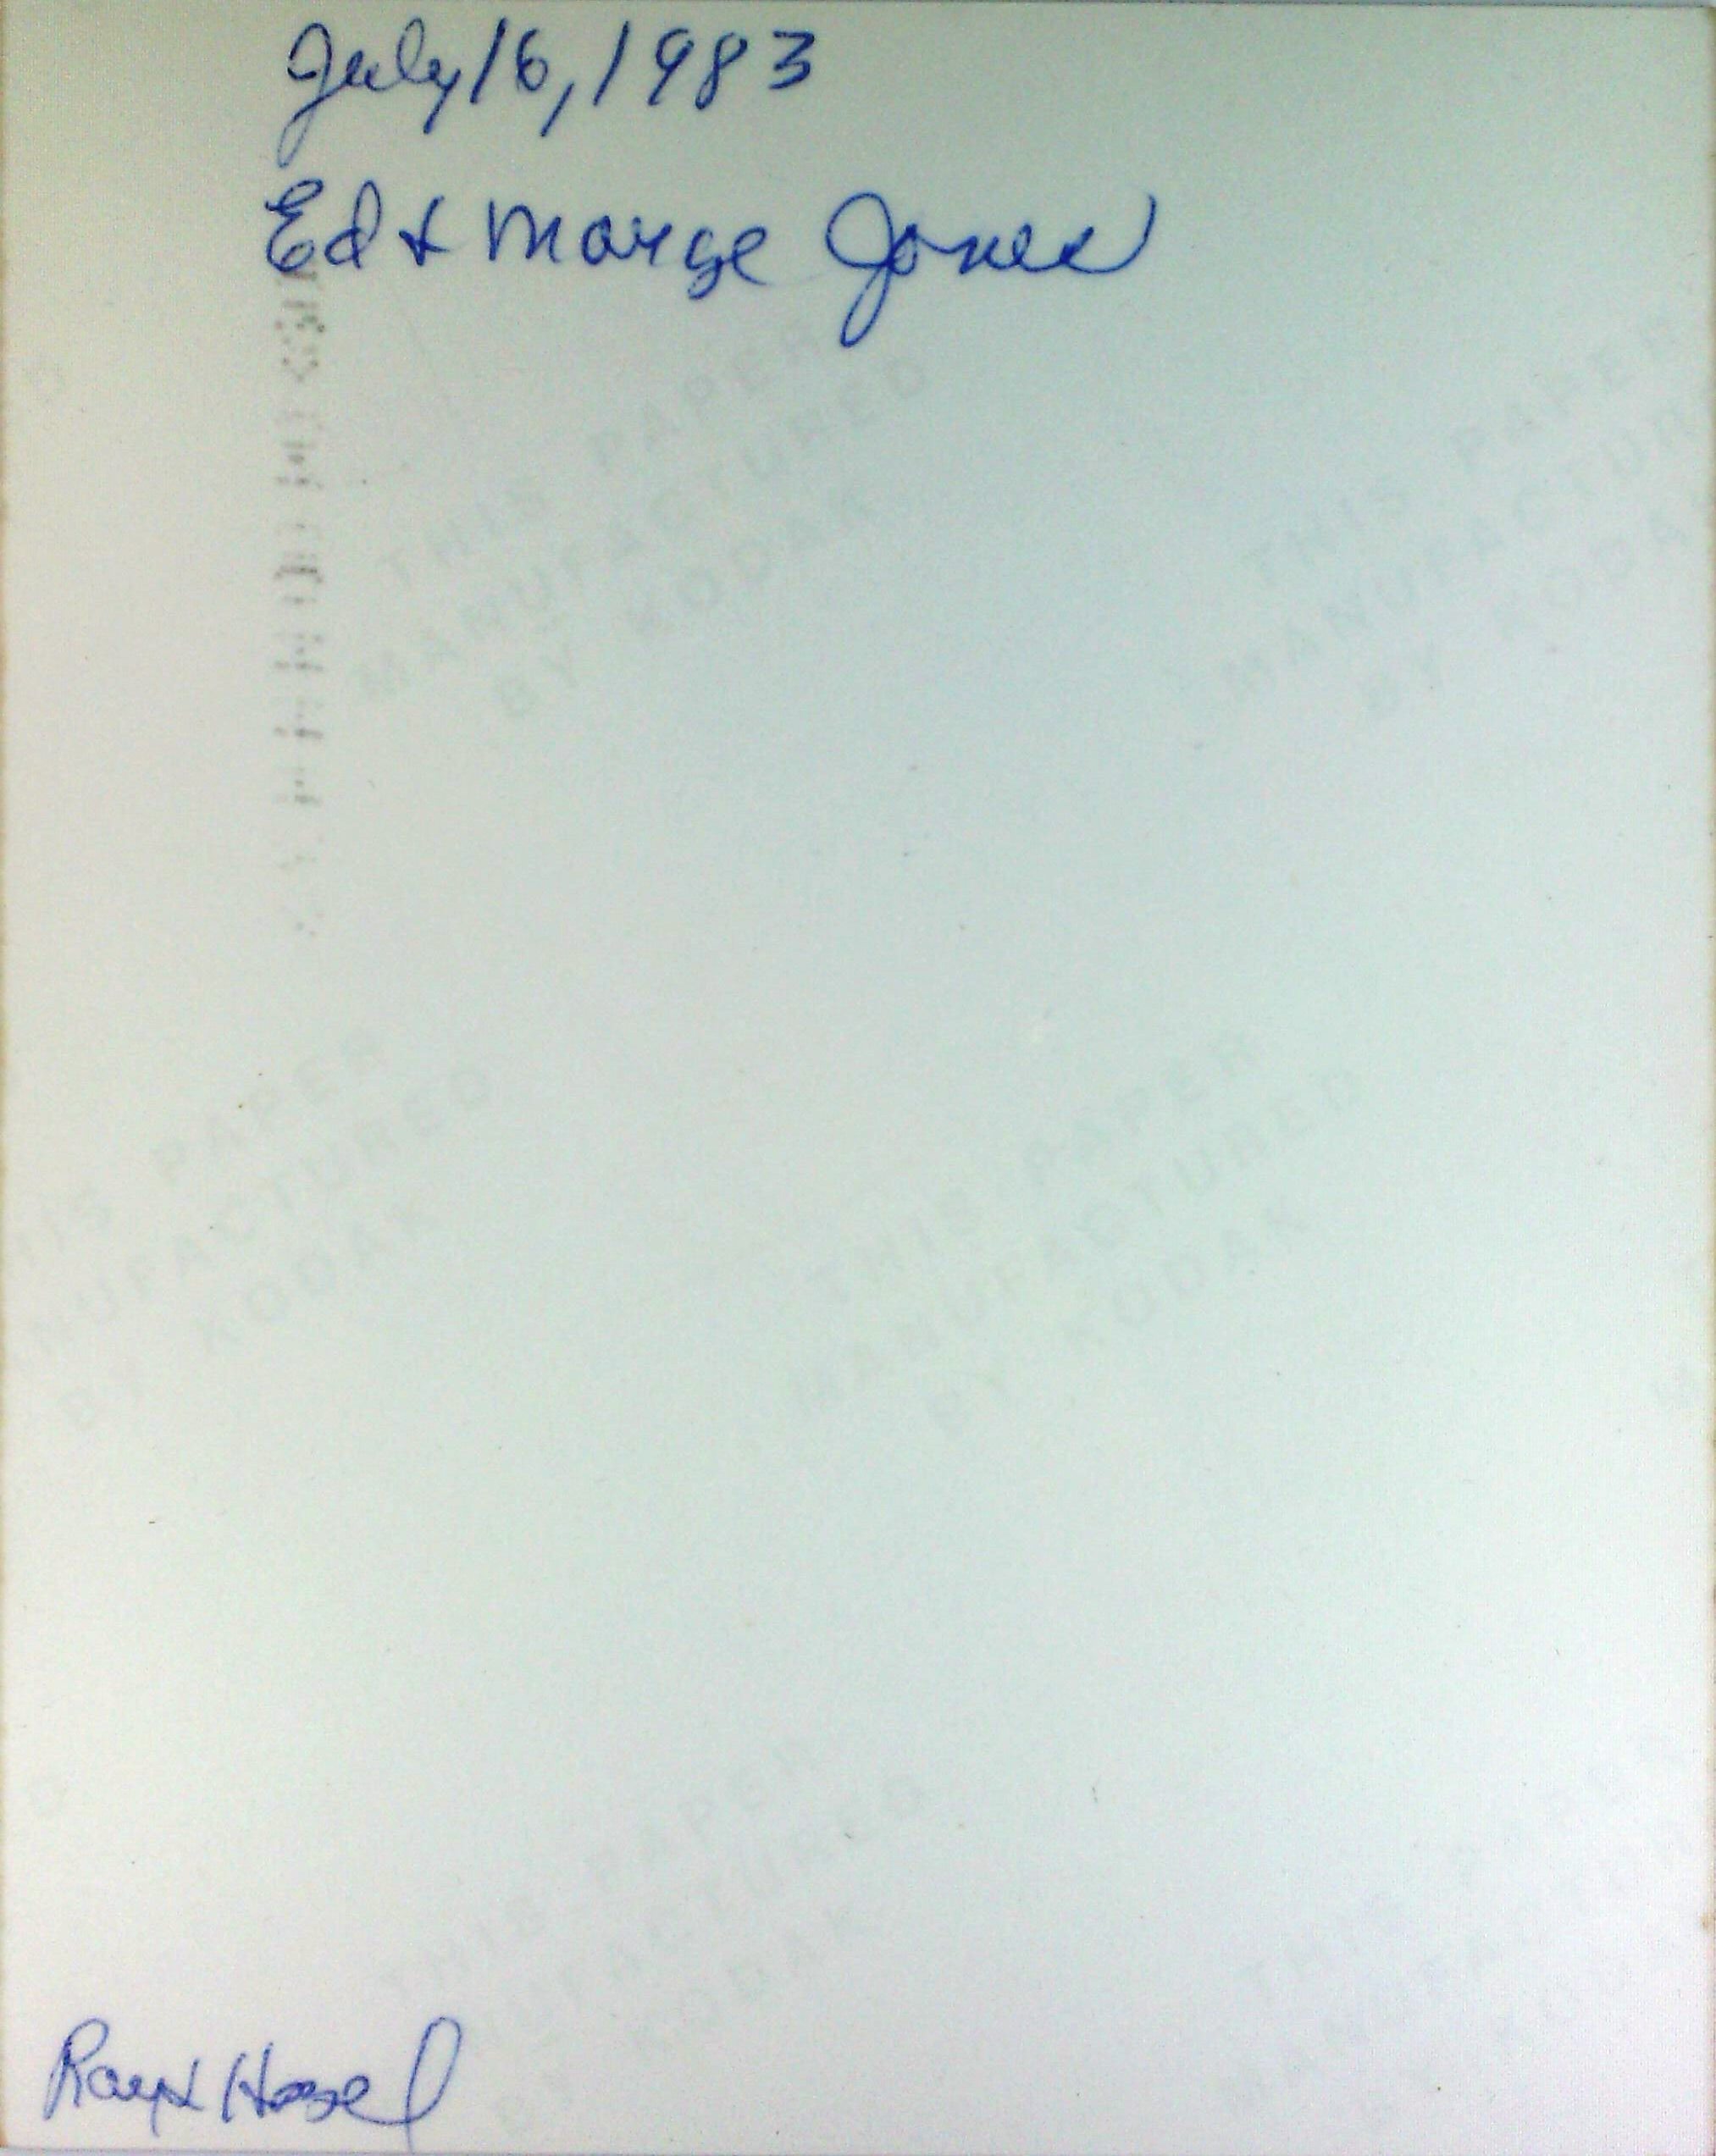 July 16, 1983
Ed & Marge Jones
THIS PAPER
MANUFACTURED
BY KODAK
THIS PAPER
MANUFACTUR
BY KODA
PAPER
NUFACTURED
BY KODAK
THIS PAPER
MANUFACTURED
BY KODAK
THIS PAPER
KODAK
Ray & Hazel